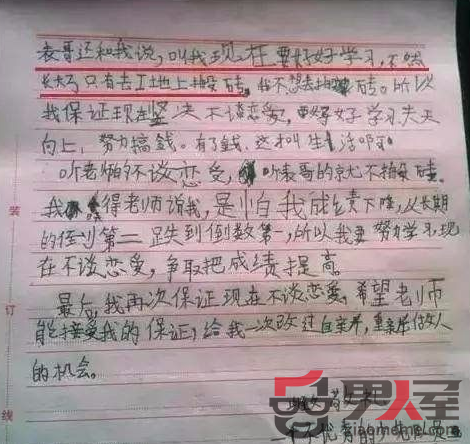 表哥还和我说,叫我现在要好好学习,不然
长大了只有去工地上搬砖。我不想去搬砖。所以
我保证现在坚决不谈恋爱,要好好学习天天
向上,努力搞钱。有了钱,这才叫生活啊
听老师的不谈恋爱,听表哥的就不搬砖。
我觉得老师说我,是怕我成绩下降,从长期
的倒数第二跌到倒数第一,所以我要努力学习,现
在不谈恋爱,争取把成绩提高。
最后,我再次保证现在不谈恋爱,希望老师
能接受我的保证,给我一次改过自亲养,重亲做人
的机会。
装
订
线
男人室